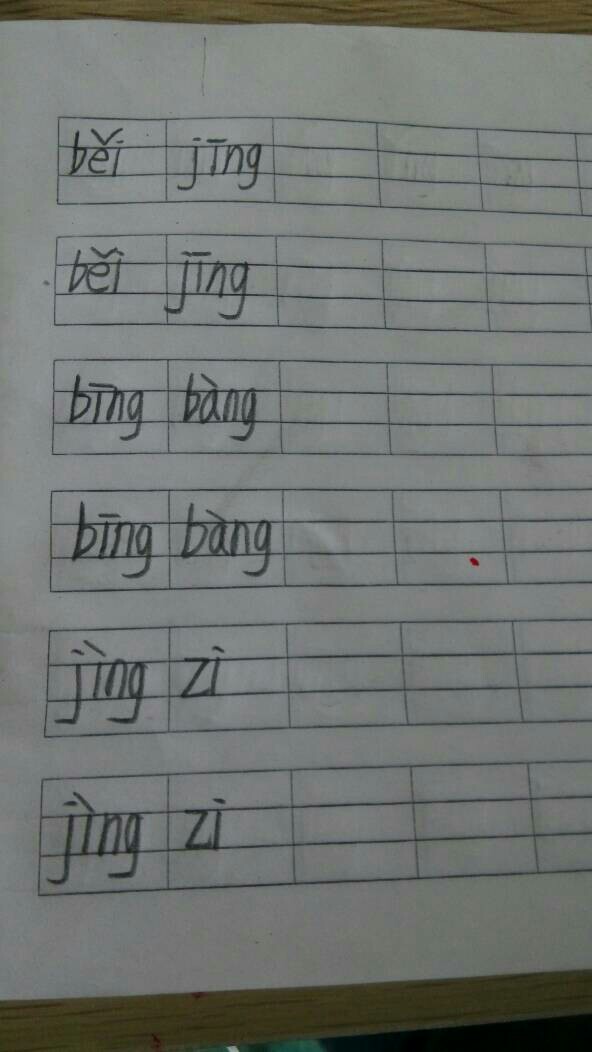 běi jīng
běi jīng
bīng bàng
bīng bàng
jìng zi
jìng zi